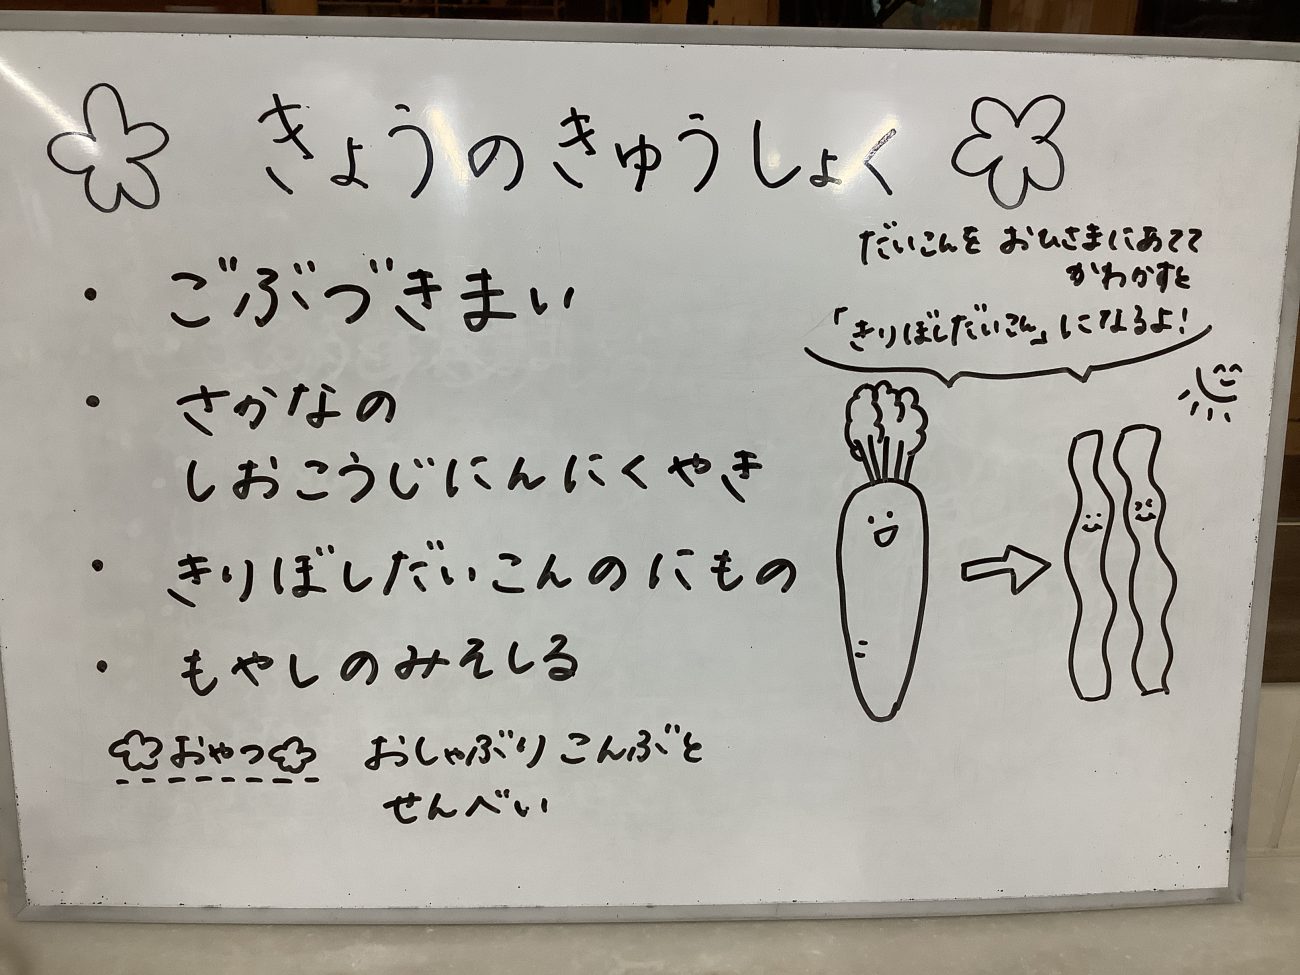 きょうのきゅうしょく
・ごぶづきまい
・さかなの
しおこうじにんにくやき
・きりぼしだいこんのにもの
・もやしのみそしる
おやつ おしゃぶりこんぶと
せんべい
だいこんを おひさまにあてて
かわかすと
「きりぼしだいこん」になるよ!